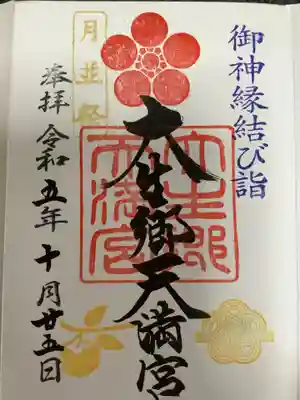 御神縁結び詣
大生郷天満宮
大生郷
天満宮
月並祭
奉拝 令和五年十月廿五日